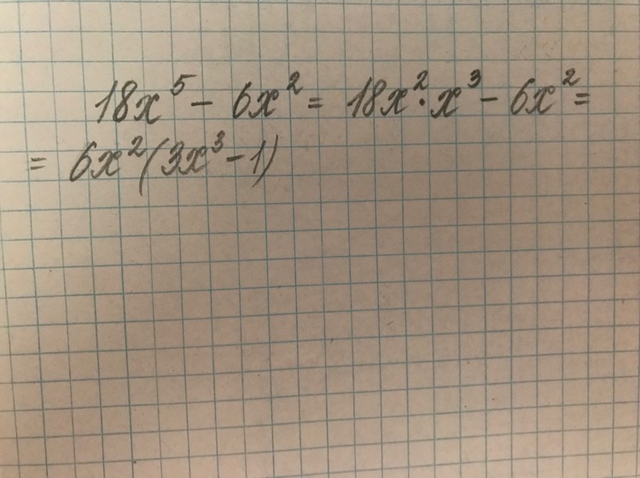 18x⁵ - 6x² = 18x² · x³ - 6x² =
= 6x² (3x³ - 1)